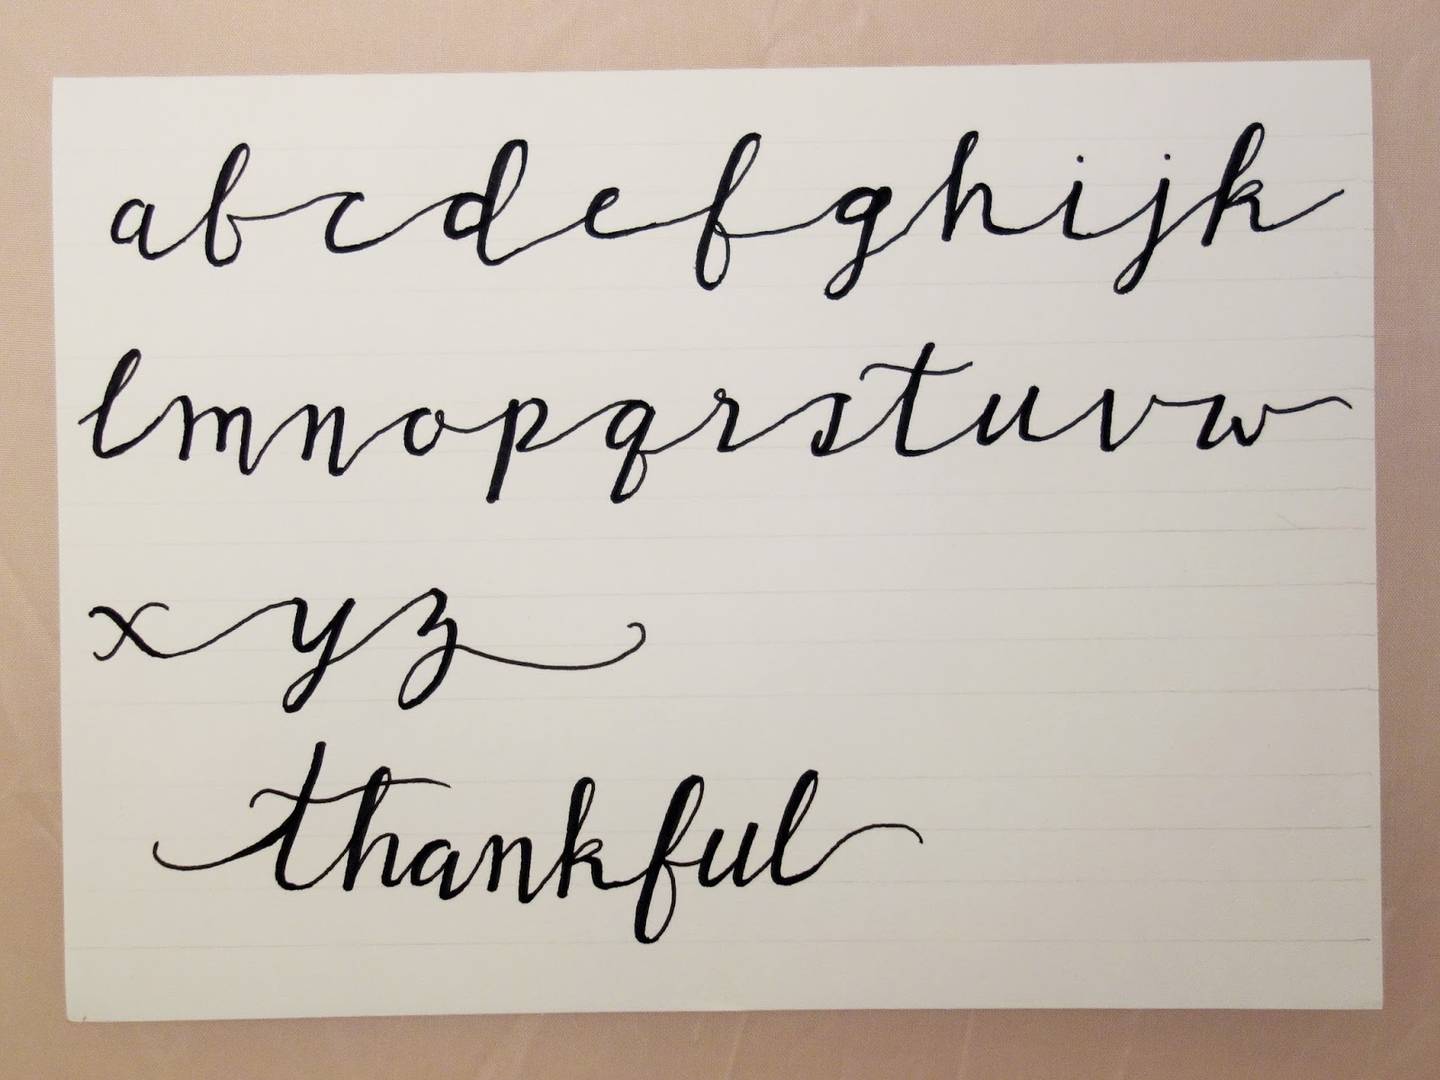 abcdefghijk
lmnopqrstuvw
xyz
thankful